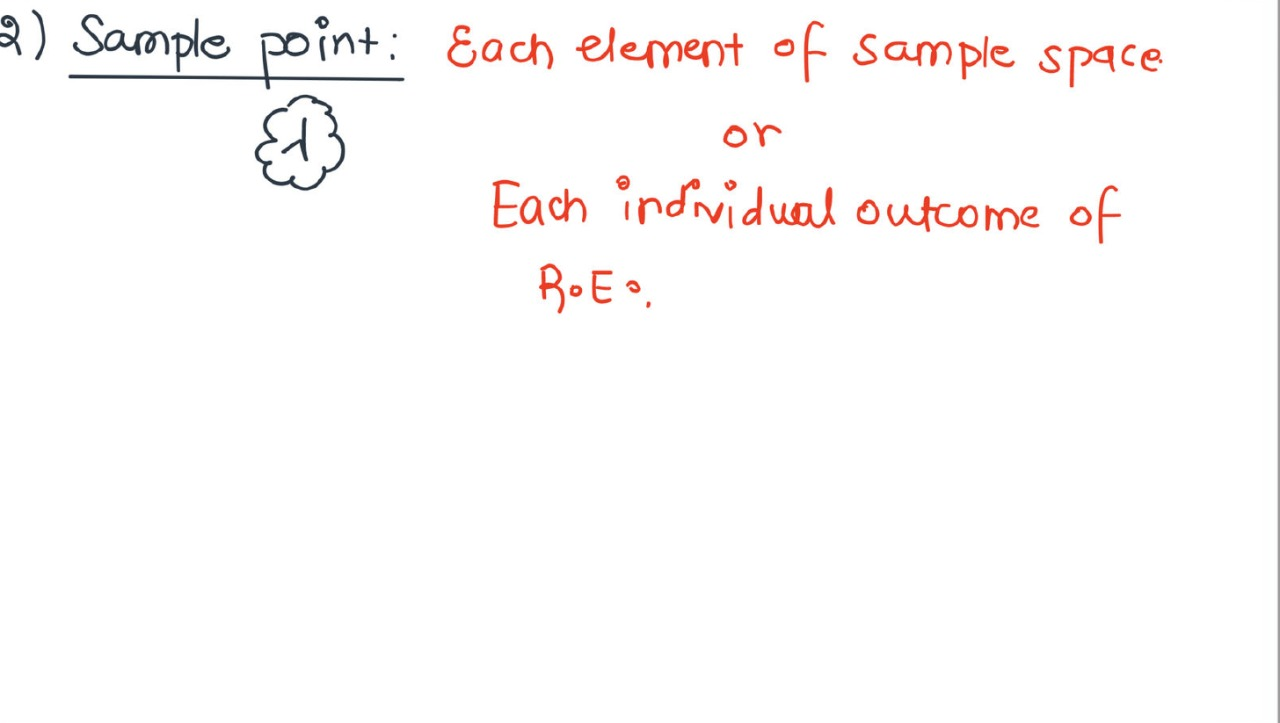 2) Sample point: Each element of sample space
λ
or
Each individual outcome of
R.E.